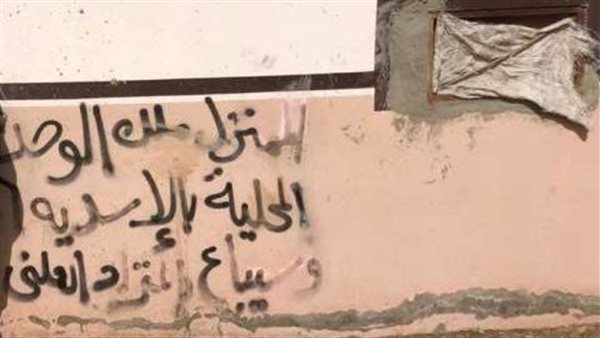 المنزل ملك الوحدة
المحلية بالإسدية
وسيباع بالمزاد العلني